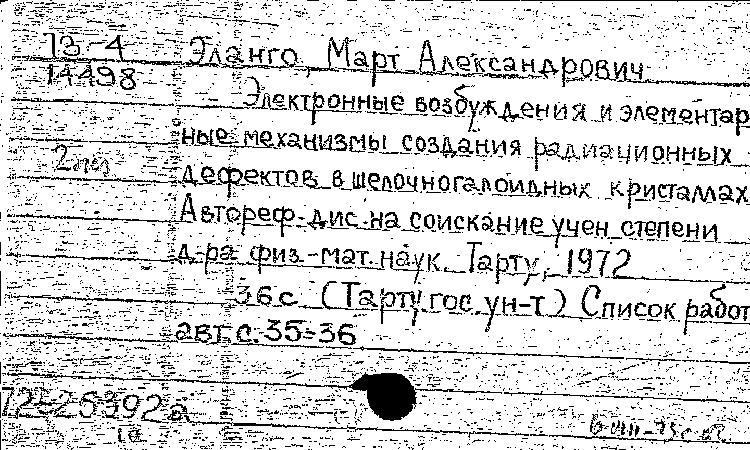 73-4 Эланго, Март Александрович
14498
Электронные возбуждения и элементар
ные механизмы создания радиационных
2пп
дефектов в щелочногалоидных кристаллах
Автореф. дис. на соискание учен. степени
д-ра физ.-мат. наук. Тарту, 1972
36 с. (Тарту. гос. ун-т) Список работ
авт. с. 35-36
72-25392а